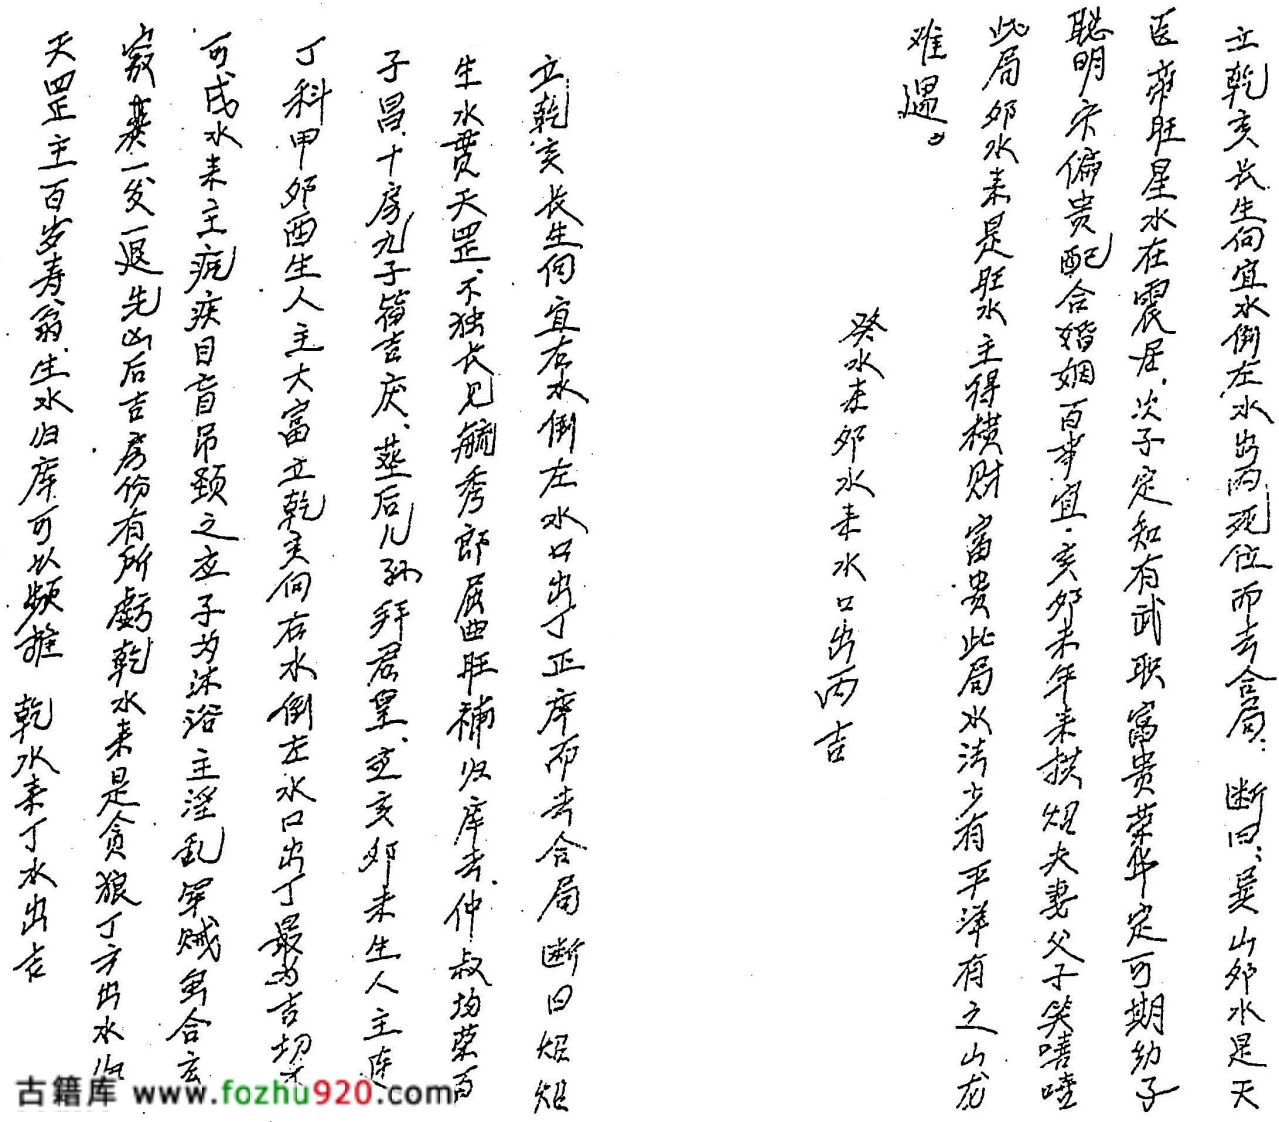 立乾亥长生向宜水倒左水出丙死位而去合局：断曰：巽山卯水是天
医帝旺星水在震居，次子定知有武职富贵荣华定可期幼子
聪明宋偏贵配合婚姻百事宜，亥卯未年来拱照夫妻父子笑嘻嘻
此局卯水来是旺水主得横财富贵此局水法少有平洋有之山龙
难遇。
癸水来卯水来水口出丙吉
立乾亥长生向宜右水倒左水口出丁正库而去合局断曰
生水贯天罡不独长见毓秀郎屈曲旺补归库去仲叔均荣百
子昌十房九子籍吉庆，葬后儿孙拜君皇，立亥卯未生人主连
丁科甲卯酉生人主大富立乾亥向右水倒左水口出丁最为吉切不
可戌水来主疯疾目盲吊颈之应子为沐浴主淫乱军贼虽合玄
窍葬一发一退先凶后吉房份有所虧乾水来是贪狼丁方出水归
天罡主百岁寿翁生水归库可以频推 乾水来丁水出吉
古籍库 www.fozhu920.com 免费